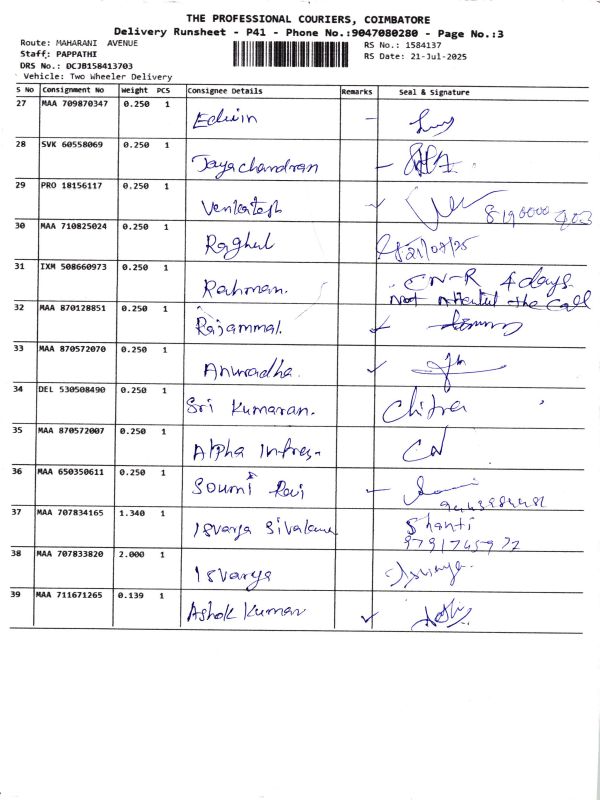 THE PROFESSIONAL COURIERS, COIMBATORE
Delivery Runsheet - P41 - Phone No.:9047080280 - Page No.:3
Route: MAHARANI AVENUE RS No.: 1584137
Staff: PAPPATHI RS Date: 21-Jul-2025
DRS No.: DCJB158413703
Vehicle: Two Wheeler Delivery
S No Consignment No Weight PCS Consignee Details Remarks Seal & Signature
27 MAA 709870347 0.250 1 Edwin
28 SVK 60558069 0.250 1 Jayachandran
29 PRO 18156117 0.250 1 Venkatesh
30 MAA 710825024 0.250 1 Raghul 21/07/25
31 IXM 508660973 0.250 1 Rahman. CN-R 4 days.
Not attented the call
32 MAA 870128851 0.250 1 Rajammal.
33 MAA 870572070 0.250 1 Anuradha.
34 DEL 530508490 0.250 1 Sri Kumaran. Chitra
35 MAA 870572007 0.250 1 Alpha Infres-
36 MAA 650350611 0.250 1 Soumi Ravi
37 MAA 707834165 1.340 1 Isvarya Shanti
9791745972
38 MAA 707833820 2.000 1 Isvarya
39 MAA 711671265 0.139 1 Ashok Kumar